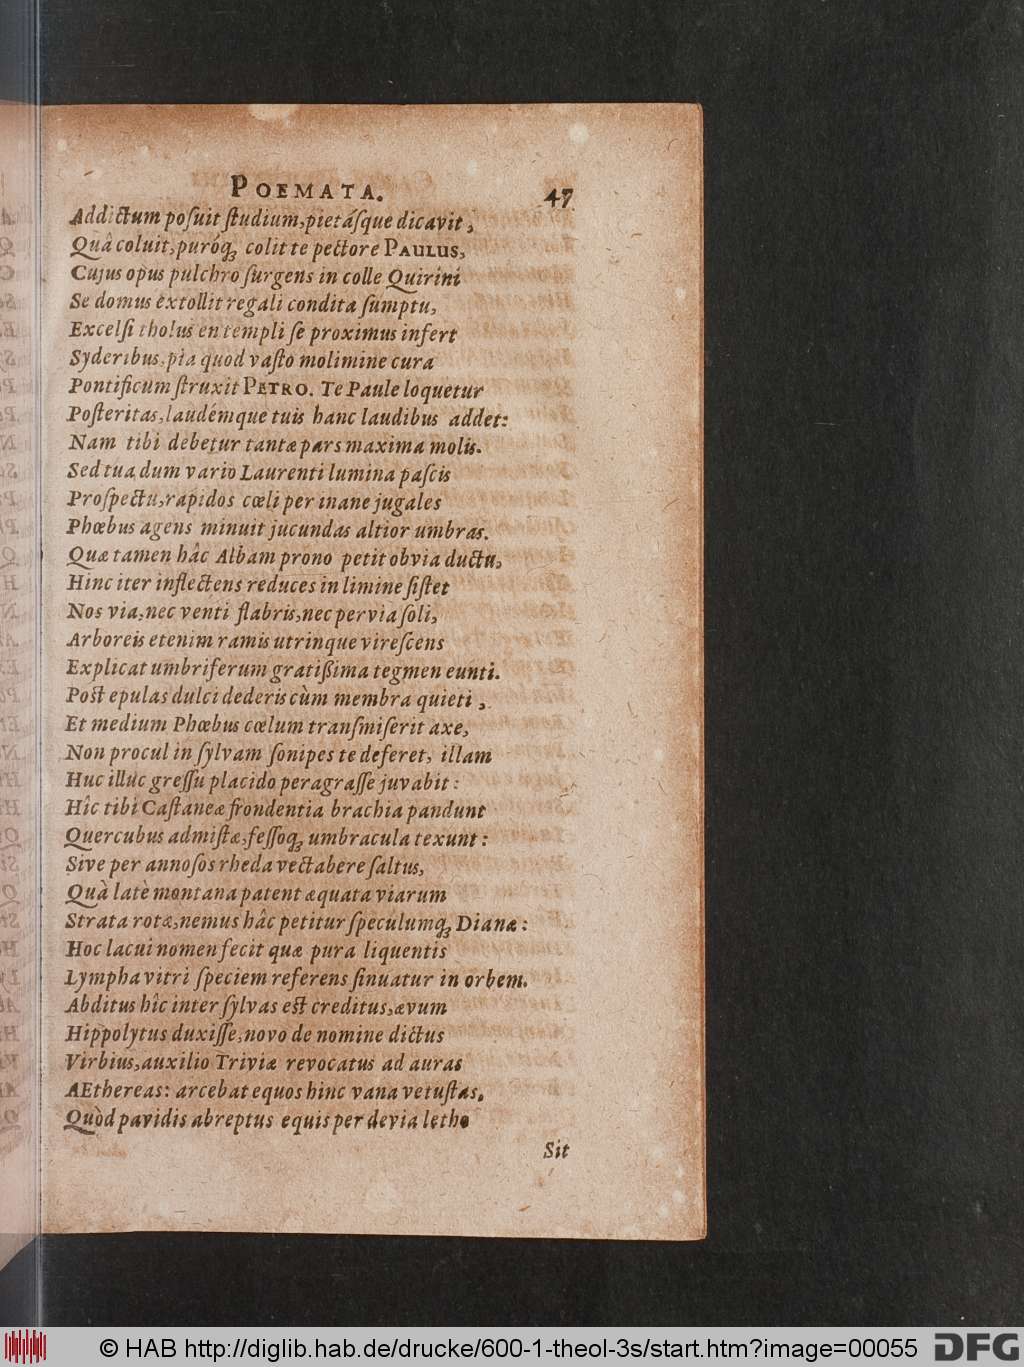 POEMATA. 47
Addictum posuit studium, pietásque dicavit,
Quâ coluit, puróq; colit te pectore PAULUS,
Cujus opus pulchro surgens in colle Quirini
Se domus extollit regali condita sumptu,
Excelsi tholus en templi se proximus infert
Syderibus, pia quod vasto molimine cura
Pontificum struxit PETRO. Te Paule loquetur
Posteritas, laudémque tuis hanc laudibus addet:
Nam tibi debetur tantæ pars maxima molis.
Sed tua dum vario Laurenti lumina pascis
Prospectu, rapidos cœli per inane jugales
Phœbus agens minuit jucundas altior umbras.
Quæ tamen hâc Albam prono petit obvia ductu,
Hinc iter inflectens reduces in limine sistet
Nos via, nec venti flabris, nec pervia soli,
Arboreis etenim ramis utrinque virescens
Explicat umbriferum gratißima tegmen eunti.
Post epulas dulci dederis cùm membra quieti,
Et medium Phœbus cœlum transmiserit axe,
Non procul in sylvam sonipes te deferet, illam
Huc illuc gressu placido peragrasse juvabit:
Hîc tibi Castaneæ frondentia brachia pandunt
Quercubus admistæ, fessoq; umbracula texunt:
Sive per annosos rheda vectabere saltus,
Quà latè montana patent æquata viarum
Strata rotæ, nemus hâc petitur speculumq; Dianæ:
Hoc lacui nomen fecit quæ pura liquentis
Lympha vitri speciem referens sinuatur in orbem.
Abditus hîc inter sylvas est creditus, ævum
Hippolytus duxisse, novo de nomine dictus
Virbius, auxilio Triviæ revocatus ad auras
AEthereas: arcebat equos hinc vana vetustas,
Quòd pavidis abreptus equis per devia letho
Sit
© HAB http://diglib.hab.de/drucke/600-1-theol-3s/start.htm?image=00055 DFG